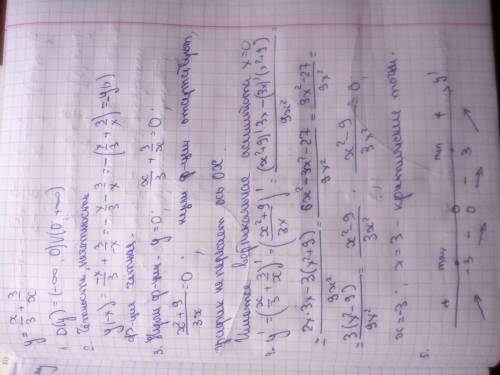 y = x/3 + 3/x
1. D(y) = (-∞, 0)∪(0, +∞)
2. Четность, нечетность
y(-x) = -x/3 + 3/-x = -x/3 - 3/x = -(x/3 + 3/x) = y(x)
ф-ция четная.
3. Нули ф-ции. y = 0; x/3 + 3/x = 0;
x²+9/3x = 0 нули ф-ции отсутствуют,
график не пересекает ось OX.
Имеется вертикальная асимптота x=0
4. y' = (x/3 + 3/x)' = (x²+9/3x)' = (x²+9)'3x - (3x)'(x²+9)/9x² =
= 2x·3x - 3(x²+9)/9x² = 6x²-3x²-27/9x² = 3x²-27/9x² =
= 3(x²-9)/9x² = x²-9/3x²; x²-9/3x² = 0;
x = -3; x = 3 критические точки.
5. + max - 0 - min + y'
-3 0 3